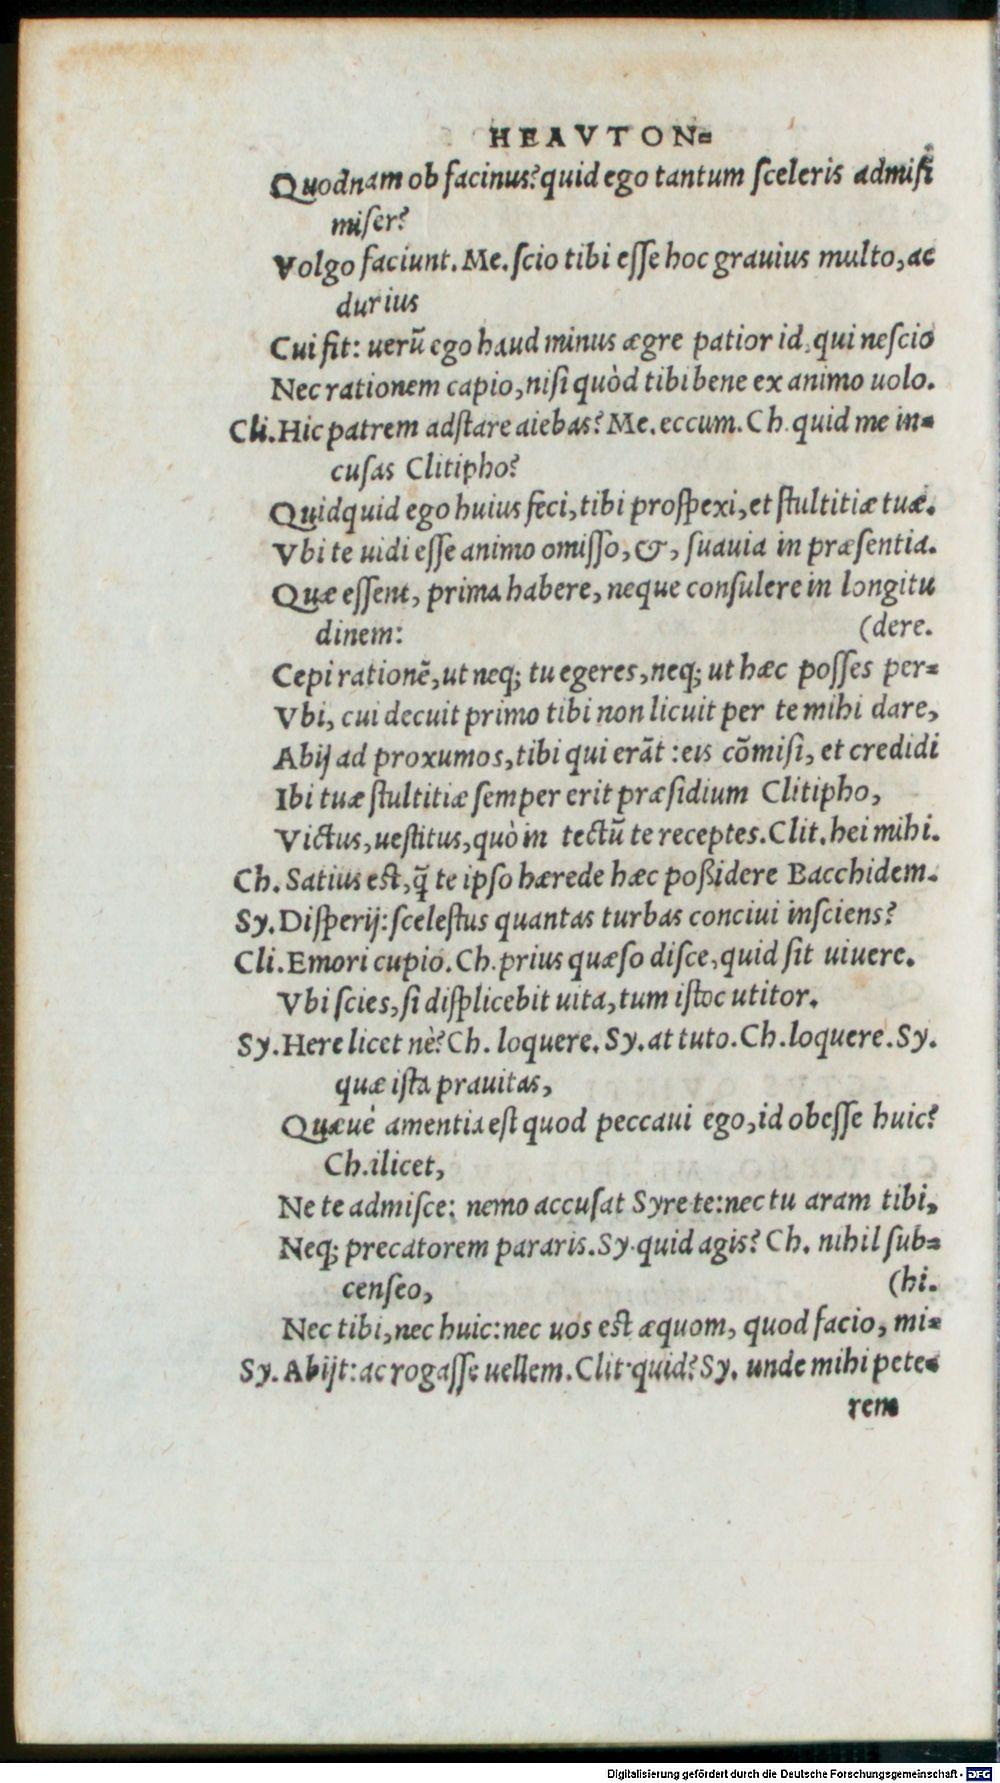 HEAVTON=
Quodnam ob facinus? quid ego tantum sceleris admisi
miser?
Volgo faciunt. Me. scio tibi esse hoc grauius multo, ac
durius
Cui fit: uerũ ego haud minus ægre patior id, qui nescio
Nec rationem capio, nisi quòd tibi bene ex animo uolo.
Cli. Hic patrem adstare aiebas? Me. eccum. Ch. quid me in=
cusas Clitipho?
Quidquid ego huius feci, tibi prospexi, et stultitiæ tuæ.
Vbi te uidi esse animo omisso, &, suauia in præsentia.
Quæ essent, prima habere, neque consulere in longitu
dinem: (dere.
Cepi rationẽ, ut neq; tu egeres, neq; ut hæc posses per=
Vbi, cui decuit primo tibi non licuit per te mihi dare,
Abij ad proxumos, tibi qui erãt: eis cõmisi, et credidi
Ibi tuæ stultitiæ semper erit præsidium Clitipho,
Victus, uestitus, quò in tectũ te receptes. Clit. hei mihi.
Ch. Satius est, q̃ te ipso hærede hæc poßidere Bacchidem.
Sy. Disperij: scelestus quantas turbas conciui insciens?
Cli. Emori cupio. Ch. prius quæso disce, quid sit uiuere.
Vbi scies, si displicebit uita, tum istoc utitor.
Sy. Here licet nè? Ch. loquere. Sy. at tuto. Ch. loquere. Sy.
quæ ista prauitas,
Quæuè amentia est quod peccaui ego, id obesse huic?
Ch. ilicet,
Ne te admisce: nemo accusat Syre te: nec tu aram tibi,
Neq; precatorem pararis. Sy. quid agis? Ch. nihil sub=
censeo, (hi.
Nec tibi, nec huic: nec uos est æquom, quod facio, mi=
Sy. Abijt: ac rogasse uellem. Clit. quid? Sy. unde mihi pete=
rem
Digitalisierung gefördert durch die Deutsche Forschungsgemeinschaft - DFG